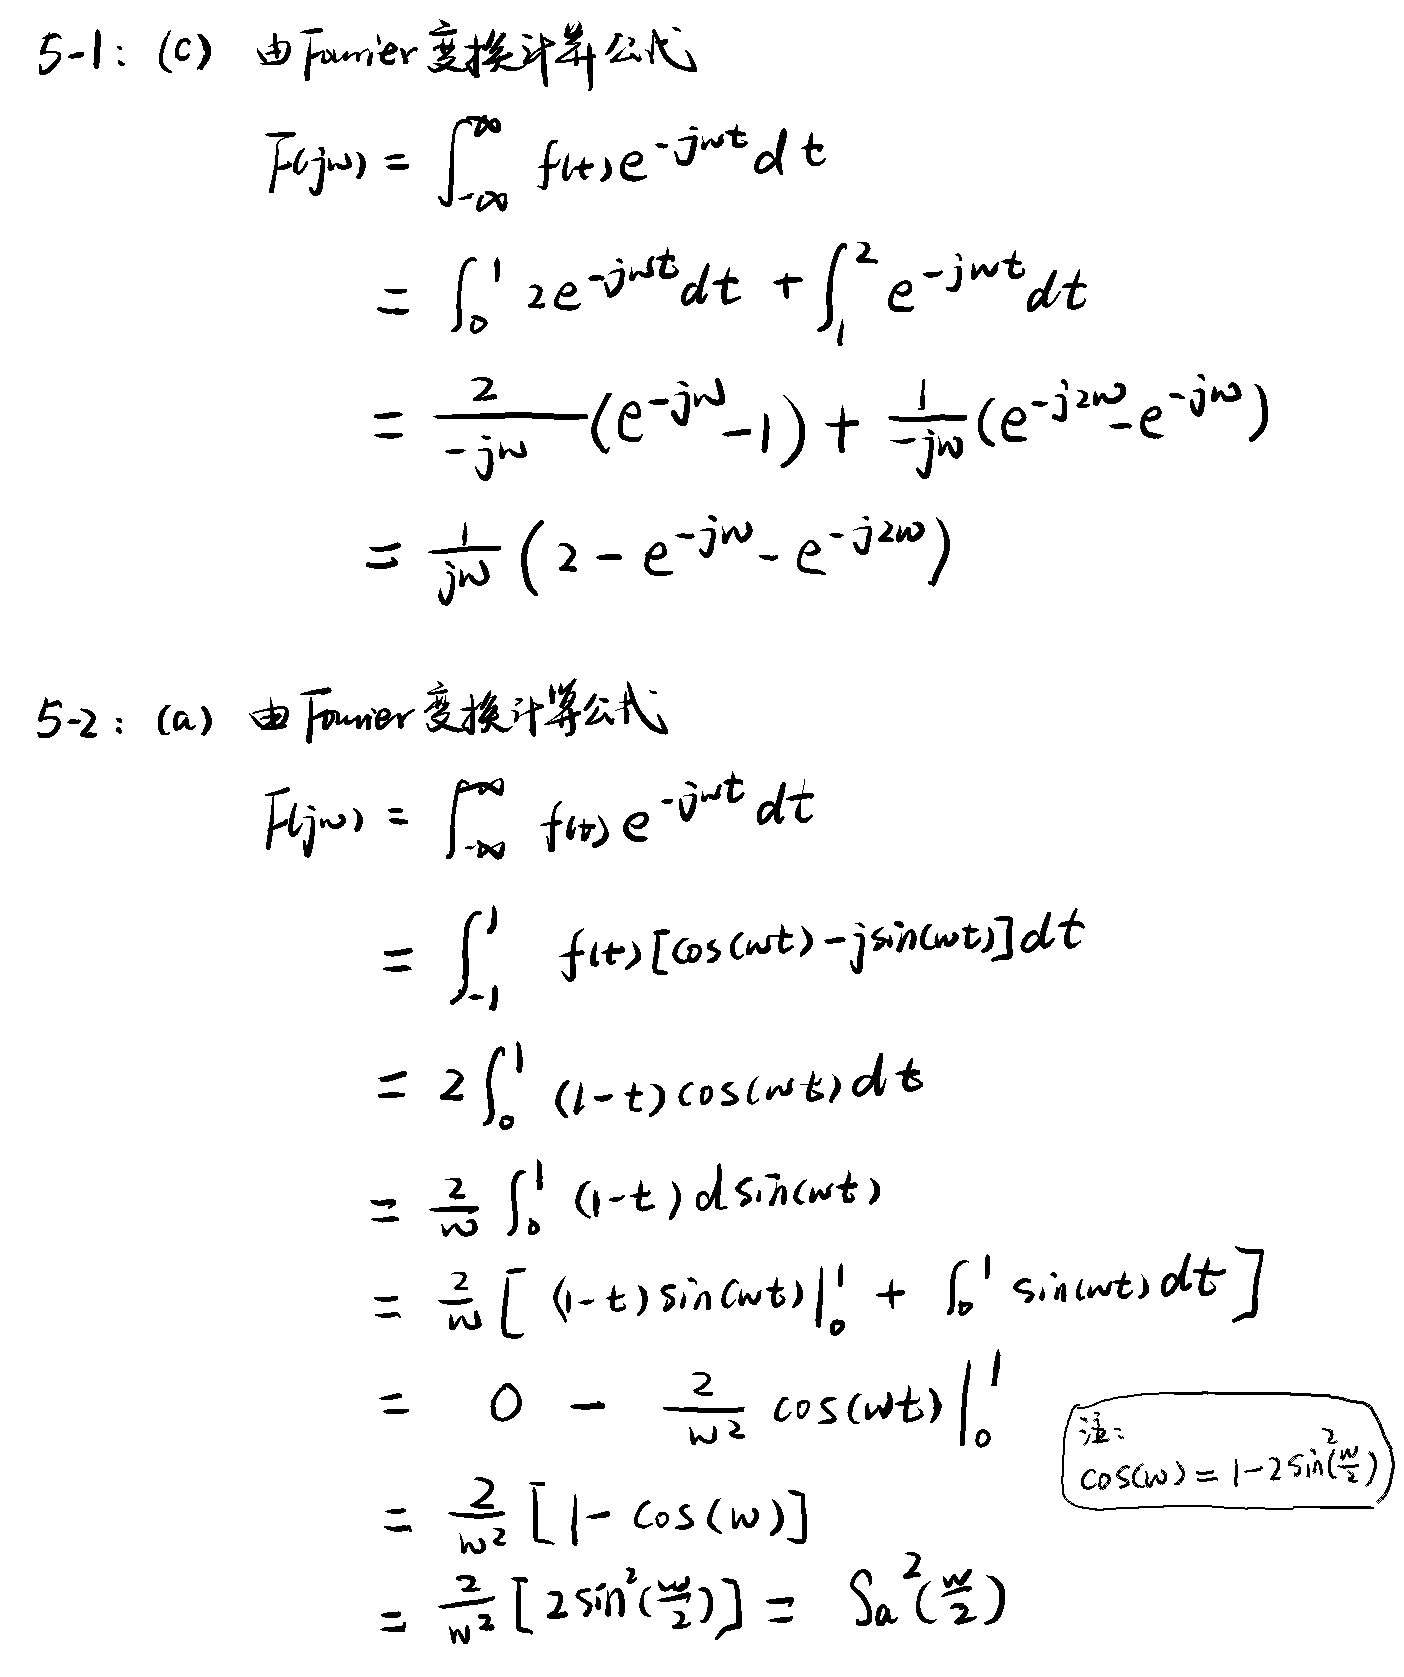 5-1: (c) 由Fourier变换计算公式
F(jω) = ∫_{-∞}^{∞} f(t)e^{-jωt}dt
= ∫_0^1 2e^{-jωt}dt + ∫_1^2 e^{-jωt}dt
= \frac{2}{-jω}(e^{-jω}-1) + \frac{1}{-jω}(e^{-j2ω}-e^{-jω})
= \frac{1}{jω}(2-e^{-jω}-e^{-j2ω})
5-2: (a) 由Fourier变换计算公式
F(jω) = ∫_{-∞}^{∞} f(t)e^{-jωt}dt
= ∫_{-1}^{1} f(t)[cos(ωt)-jsin(ωt)]dt
= 2∫_0^1 (1-t)cos(ωt)dt
= \frac{2}{ω}∫_0^1 (1-t)dsin(ωt)
= \frac{2}{ω}[(1-t)sin(ωt)|_0^1 + ∫_0^1 sin(ωt)dt]
= 0 - \frac{2}{ω^2}cos(ωt)|_0^1
注:
cos(ω)=1-2sin^2(\frac{ω}{2})
= \frac{2}{ω^2}[1-cos(ω)]
= \frac{2}{ω^2}[2sin^2(\frac{ω}{2})] = Sa^2(\frac{ω}{2})